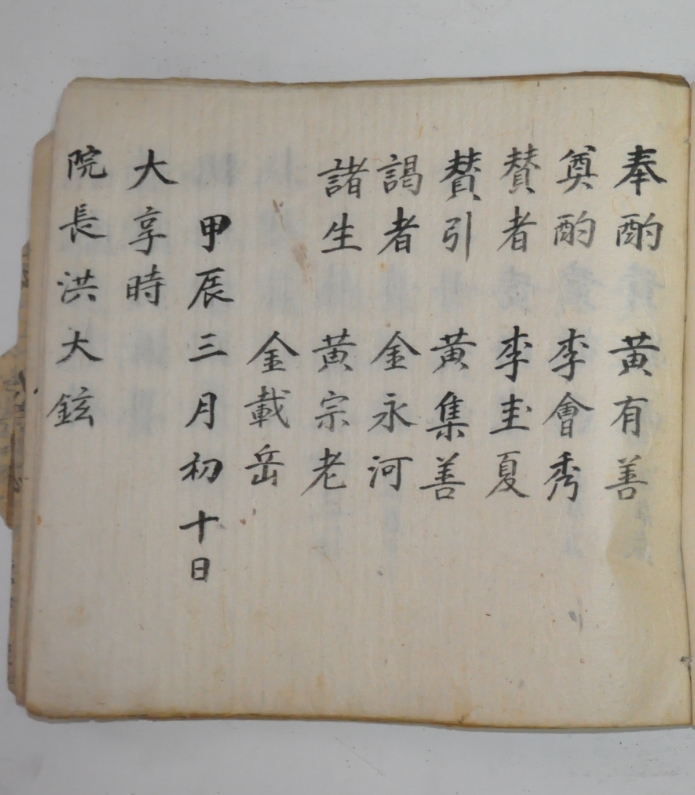 奉酌 黃有善
奠酌 李會秀
賛者 李圭夏
賛引 黃集善
謁者 金永河
諸生 黃宗老
金載岳
甲辰三月初十日
大享時
院長洪大鉉